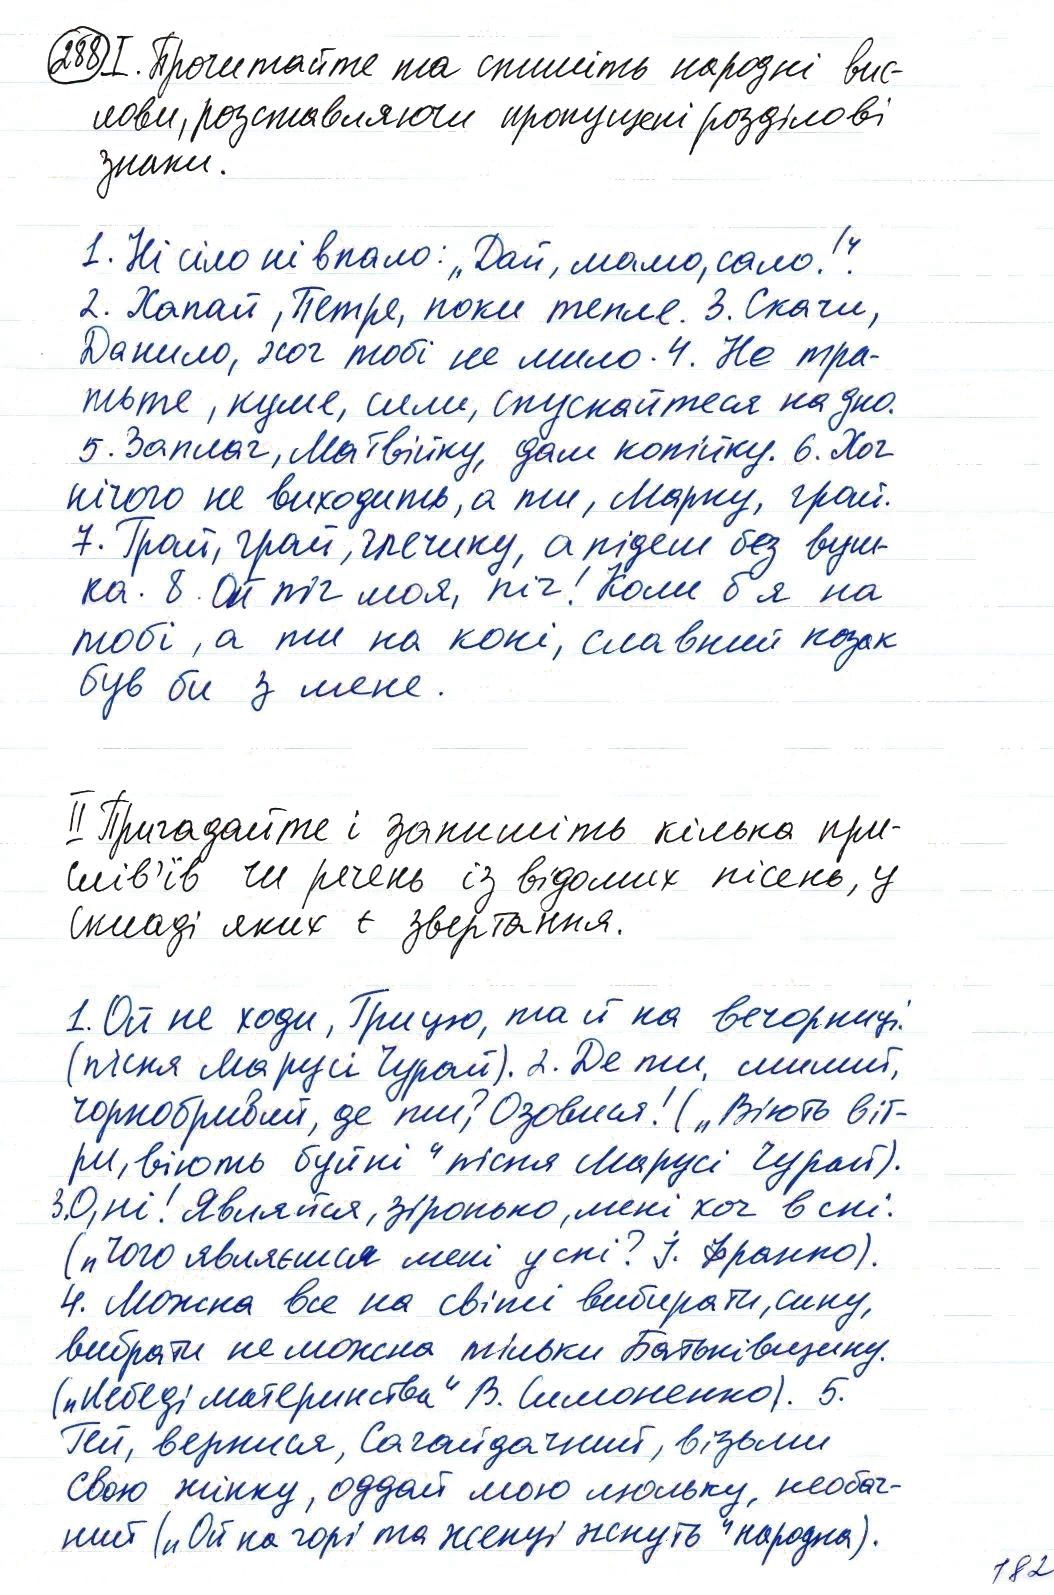 288 I. Прочитайте та спишіть народні вис-
лови, розставляючи пропущені розділові
знаки.
1. Ні сіло ні впало: „Дай, мамо, сало!“.
2. Хапай, Петре, поки тепле. 3. Скачи,
Данило, хоч тобі не мило. 4. Не тра-
тьте, куме, сили, спускайтеся на дно.
5. Заплач, Матвійку, дам копійку. 6. Хоч
нічого не виходить, а ти, Марку, грай.
7. Грай, грай, глечику, а підеш без вуш-
ка. 8. Ой піч моя, піч! Коли б я на
тобі, а ти на коні, славний козак
був би з мене.
II Пригадайте і запишіть кілька при-
слів'їв чи речень із відомих пісень, у
складі яких є звертання.
1. Ой не ходи, Грицю, та й на вечорниці.
(пісня Марусі Чурай). 2. Де ти, милий,
чорнобривий, де ти? Озовися! („Віють віт-
ри, віють буйні“ пісня Марусі Чурай).
3. О, ні! Являйся, зіронько, мені хоч в сні.
(„Чого являєшся мені у сні? І. Франко).
4. Можна все на світі вибирати, сину,
вибрати не можна тільки Батьківщину.
(„Лебеді материнства“ В. Симоненко). 5.
Гей, вернися, Сагайдачний, візьми
свою жінку, оддай мою люльку, необач-
ний („Ой на горі та женці жнуть“ народна).
182